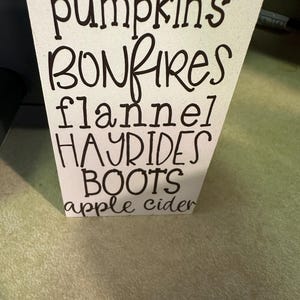 pumpkins
BONfIRES
flannel
HAYRIDES
BOOTS
apple cider